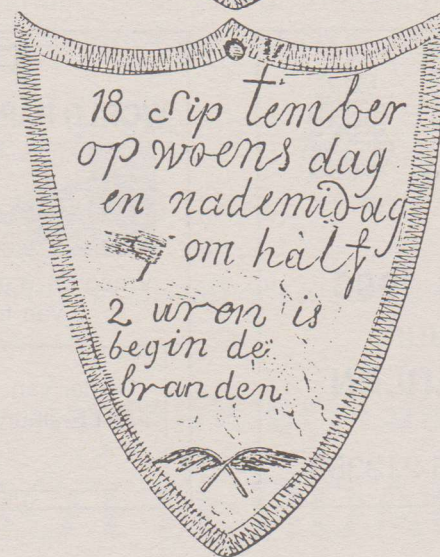 18 Sip tember
op woens dag
en nademidag
om half
2 uren is
begin de
branden